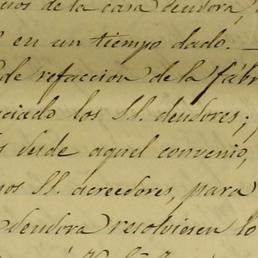 nos de la casa deudora,
en un tiempo dado. —
de refaccion de la fábr
ciado los SS. deudores;
desde aquel convenio,
nos SS. acreedores, para
deudora resolviesen lo